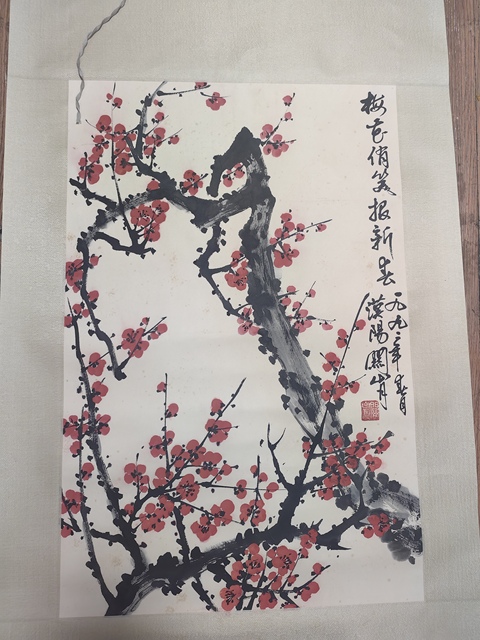 梅花俏笑报新春
一九九二年春月
漠陽關山月